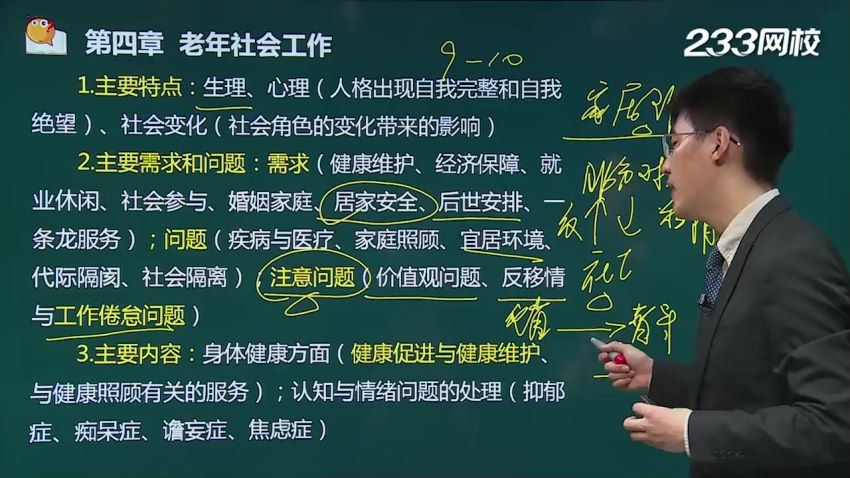 第四章 老年社会工作
233网校
9-10
1.主要特点：生理、心理（人格出现自我完整和自我
绝望）、社会变化（社会角色的变化带来的影响）
2.主要需求和问题：需求（健康维护、经济保障、就
业休闲、社会参与、婚姻家庭、居家安全、后世安排、一
条龙服务）；问题（疾病与医疗、家庭照顾、宜居环境、
代际隔阂、社会隔离）；注意问题（价值观问题、反移情
与工作倦怠问题）
3.主要内容：身体健康方面（健康促进与健康维护、
与健康照顾有关的服务）；认知与情绪问题的处理（抑郁
症、痴呆症、谵妄症、焦虑症）
社工